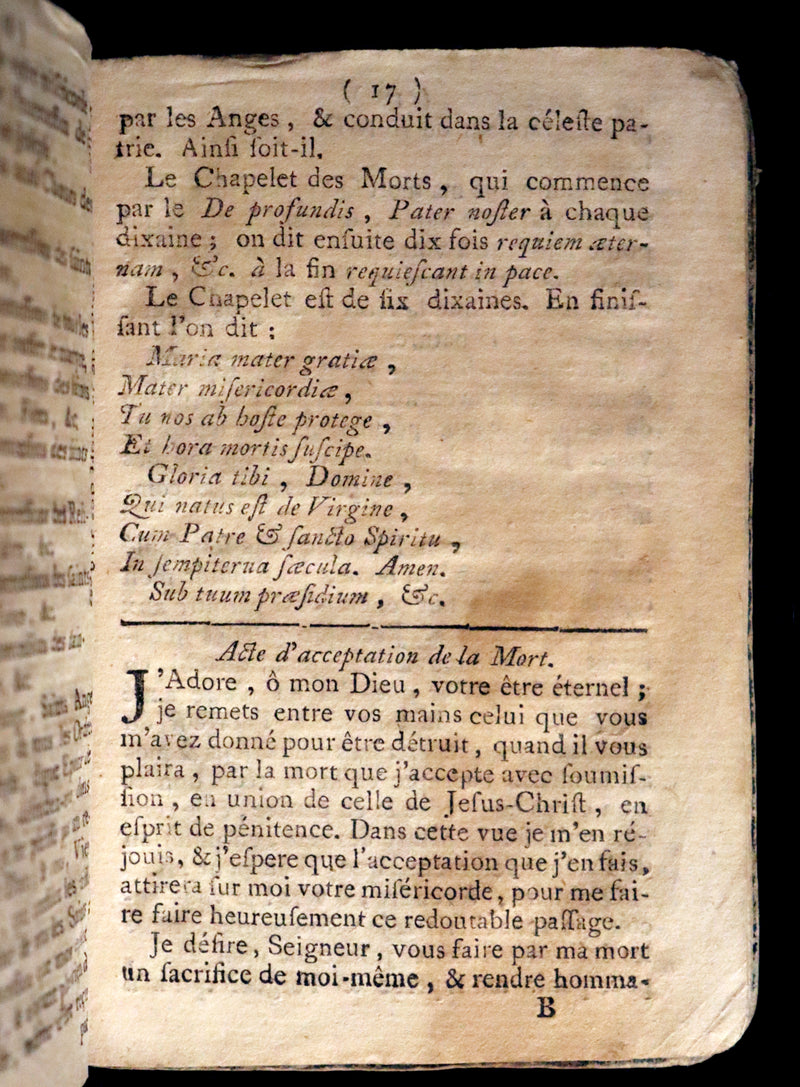 ( 17 )
par les Anges, & conduit dans la céleſte pa-
trie. Ainſi ſoit-il.
Le Chapelet des Morts, qui commence
par le De profundis, Pater noſter à chaque
dixaine; on dit enſuite dix fois requiem æter-
nam, &c. à la fin requieſcant in pace.
Le Chapelet eſt de ſix dixaines. En finiſ-
ſant l'on dit :
Maria mater gratiæ,
Mater miſericordiæ,
Tu nos ab hoſte protege,
Et hora mortis ſuſcipe.
Gloria tibi, Domine,
Qui natus eſt de Virgine,
Cum Patre & ſancto Spiritu,
In ſempiterua ſæcula. Amen.
Sub tuum præſidium, &c.
Acte d'acceptation de la Mort.
J'Adore, ô mon Dieu, votre être éternel;
je remets entre vos mains celui que vous
m'avez donné pour être détruit, quand il vous
plaira, par la mort que j'accepte avec ſoumiſ-
ſion, en union de celle de Jeſus-Chriſt, en
eſprit de pénitence. Dans cette vue je m'en ré-
jouis, & j'eſpere que l'acceptation que j'en fais,
attirera ſur moi votre miſéricorde, pour me fai-
re faire heureuſement ce redoutable paſſage.
Je déſire, Seigneur, vous faire par ma mort
un ſacrifice de moi-même, & rendre homma-
B